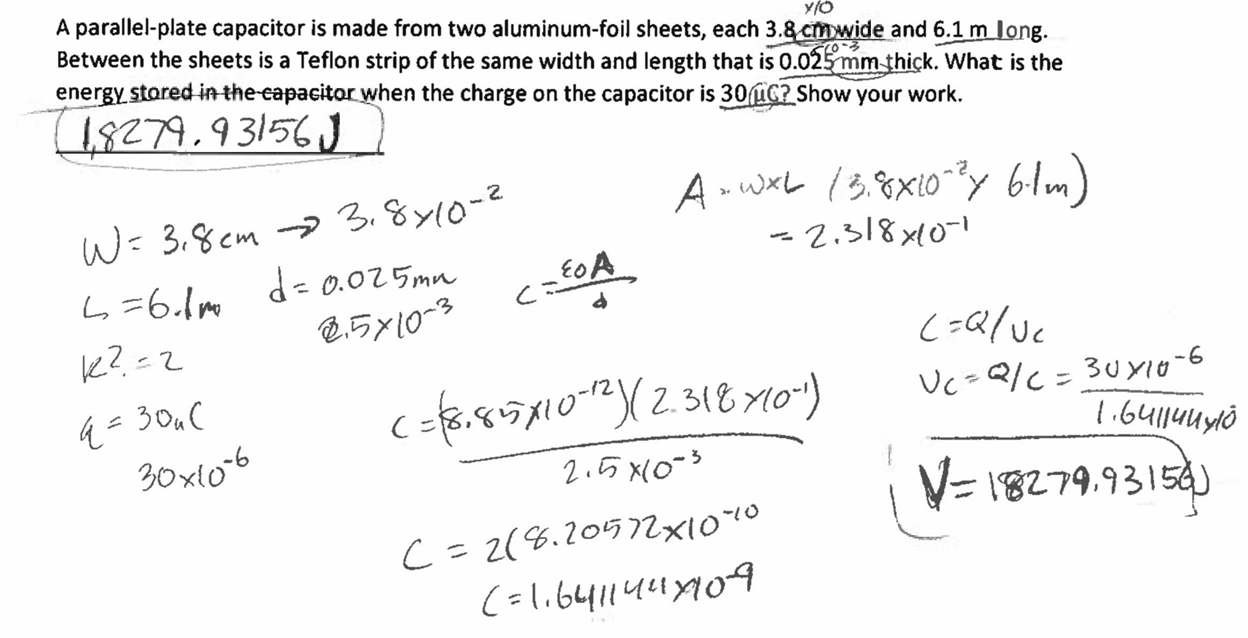 x10
A parallel-plate capacitor is made from two aluminum-foil sheets, each 3.8 cm wide and 6.1 m long.
10⁻³
Between the sheets is a Teflon strip of the same width and length that is 0.025 mm thick. What is the
energy stored in the capacitor when the charge on the capacitor is 30 μC? Show your work.
1,8279.93156J
A = W×L (3.8×10⁻² × 6.1m)
= 2.318×10⁻¹
W = 3.8cm → 3.8×10⁻²
L = 6.1m
d = 0.025mm
2.5×10⁻³
C = ε0A/d
k? = 2
q = 30uC
30×10⁻⁶
C = (8.85×10⁻¹²)(2.318×10⁻¹)
2.5×10⁻³
C = 2(8.20572×10⁻¹⁰
C = 1.641144×10⁻⁹
C = Q/Vc
Vc = Q/C = 30×10⁻⁶
1.641144×10
V = 18279.93156J